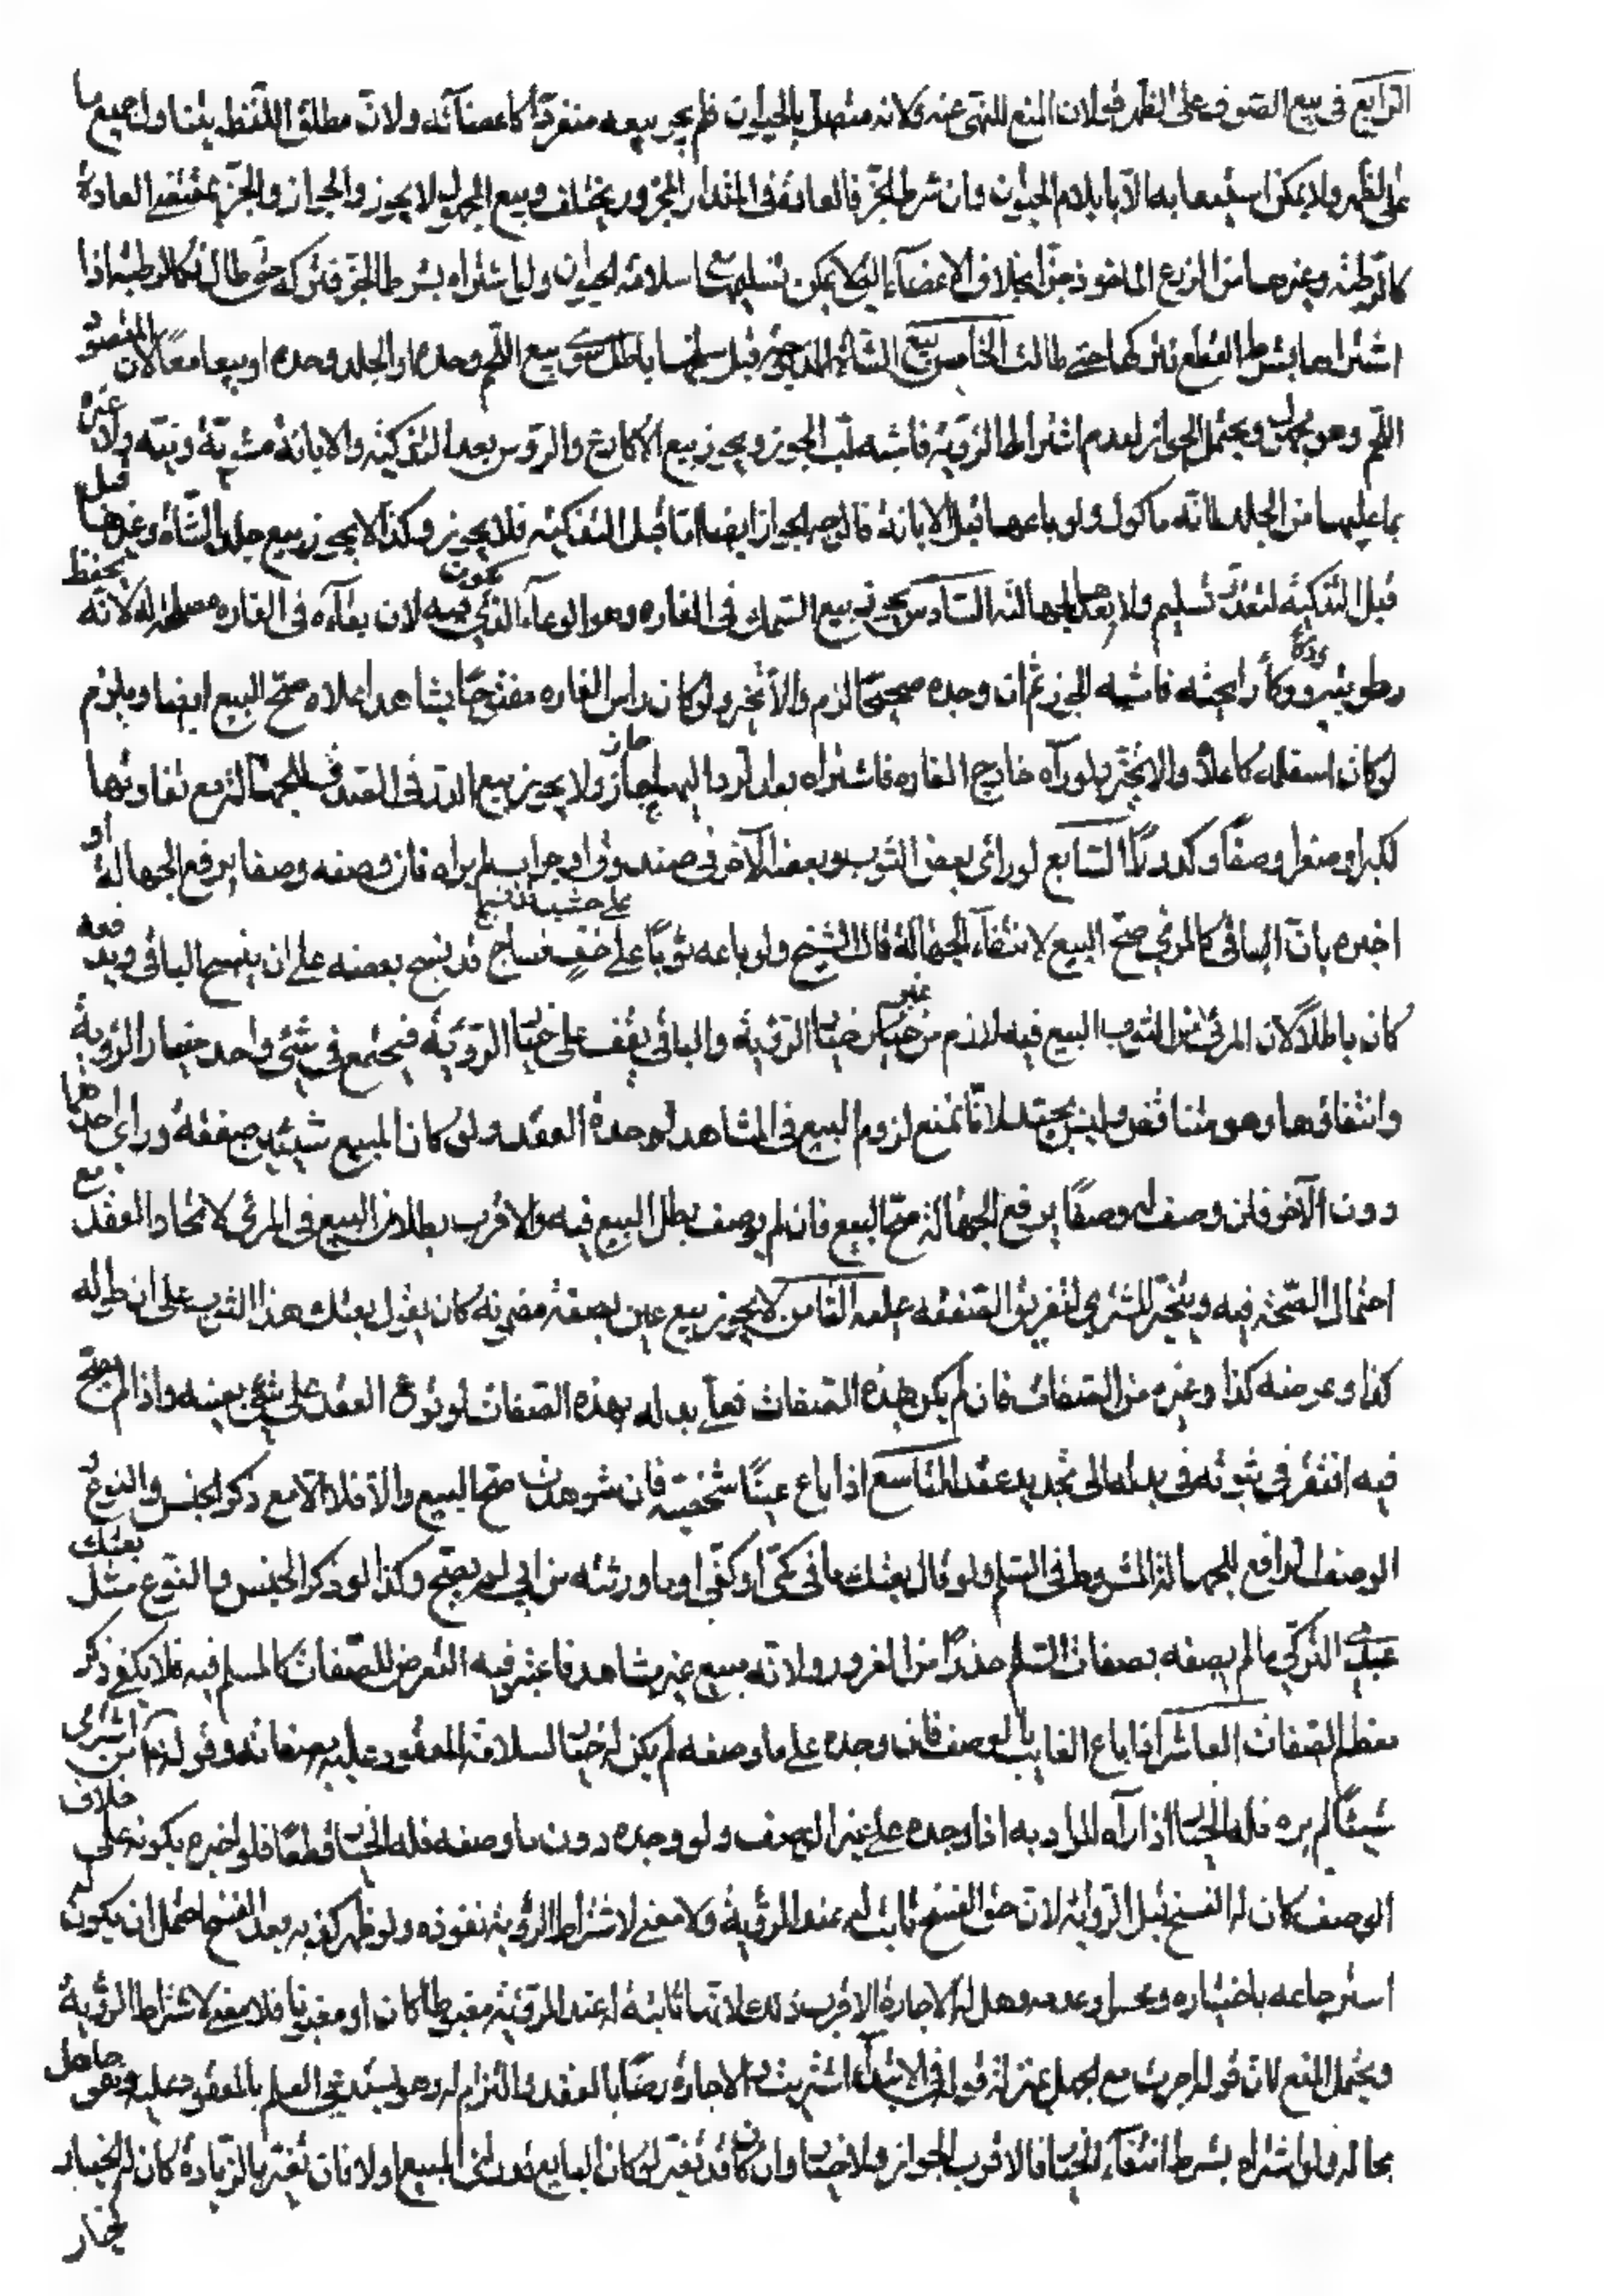 الرابع في بيع الصوف على الظهر قولان المنع للنهي عنه ولانه متصل بالحيوان فلم يجز بيعه منفردا كاعضائه ولان مطلق اللفظ يتناول جميع ما
على الظهر ولا يمكن استيعابه الا بايلام الحيوان وان شرط الجز فالعادة في المقدار المجزور يختلف وبيع المجهول لا يجوز والجواز والجز بمقتضى العادة
كالرطبة وغيرها من الزرع الماخوذ جزا بخلاف الاعضاء التي لا يمكن تسليمها مع سلامة الحيوان ولو اشتراه بشرط الجز فتركه حتى طال فكالرطبة اذا
اشتراها بشرط القطع فتركها حتى طالت الخامس بيع الشاة المذبوحة قبل سلخها باطل سواء بيع اللحم وحده او الجلد وحده او بيعا معا لان المقصود
اللحم وهو مجهول ويحتمل الجواز لعدم اشتراط الرؤية فاشبه لب الجوز ويجوز بيع الاكارع والرؤس بعد التذكية والابانة مشوية ونية ولا غرر
بما عليها من الجلد فانه ماكول ولو باعها قبل الابانة فالوجه الجواز ايضا اما قبل التذكية فلا يجوز وكذا لا يجوز بيع جلد الشاة وغيرها قبل
قبل التذكية لتعذر تسليم ولا بعدها لجهالته السادس يجوز بيع السمك في الفاره وهو الوعاء الذي يكون فيه لان بقاءه في الفاره مصلحة له لانه يحفظ
رطوبته وذكاء رائحته فاشبه الجوز ثم ان وجده صحيحا لزم والا تخير ولو كان راس الفاره مفتوحا يشاهد اعلاه صح البيع ايضا ويلزم
لو كان اسفله كاعلاه والا يخير ولو رآه خارج الفاره فاشتراه بعد الرد اليها جاز ولا يجوز بيع الدر في الصدف للجهالة مع تفاوتها
لكبر او صغر او صفاء وكدورة السابع لو راى بعض الثوب وبعضه الآخر في صندوق او جراب لم يراه فان وصفه وصفا يرفع الجهالة او
اخبره بان الباقي كالمرئي صح البيع لانتفاء الجهالة قال الشيخ ولو باعه ثوبا على خف نساج قد نسج بعضه على ان ينسج الباقي ويدفعه
كان باطلا لان المرئي من الثوب البيع فيه لازم من غير خيار الرؤية والباقي يقف على خيار الرؤية فيجتمع في شئ واحد خيار الرؤية
وانتفاؤها وهو متناقض وليس بجيد لانا نمنع لزوم البيع في المشاهد لوحدة العقد ولو كان المبيع شيئين صفقة وراى احدهما
دون الآخر فان وصف له وصفا يرفع الجهالة صح البيع فان لم يوصف بطل البيع فيه والاقرب بطلان البيع في المرئي لاتحاد العقد مع
احتمال الصحة فيه ويتخير المشتري لتفريق الصفقة عليه الثامن لا يجوز بيع عين بصفة مضمونة كان يقول بعتك هذا الثوب على ان طوله
كذا وعرضه كذا وغيره من الصفات فان لم يكن بهذه الصفات فعلي بدله بهذه الصفات لوقوع العقد على شئ بعينه واذا لم يصح
فيه افتقر في ثبوته في بدله الى تجديد عقد التاسع اذا باع عينا شخصية فان شوهدت صح البيع والا فلا الا مع ذكر الجنس والنوع و
الوصف الرافع للجهالة المشروط في السلم ولو قال بعتك ما في كمي او كفي او ما ورثته من ابي لم يصح وكذا لو ذكر الجنس والنوع مثل بعتك
عبدي التركي ما لم يصفه بصفات السلم حذرا من الغرر ولانه مبيع غير مشاهد فاعتبر فيه التعرض للصفات كالمسلم فيه فلا يكفي ذكر
معظم الصفات العاشر اذا باع الغايب بالوصف فان وجده على ما وصفه لم يكن له خيار لسلامة المعقود عليه بصفاته وقوله من اشترى
شيئا لم يره فله الخيار اذا رآه المراد به اذا وجده على غير الوصف ولو وجده دون ما وصفه فله الخيار قطعا فلو اخبره بكونه على خلاف
الوصف كان له الفسخ قبل الرؤية لان حق الفسخ ثابت له عند الرؤية ولا معنى لاشتراط الرؤية نفوذه ولو ظهر كذبه بعد الفسخ احتمل ان يكون له
استرجاعه باختياره وعدمه وهل له الاجازة الاقرب ذلك لانها ثابتة له عند الرؤية مغبوطا كان او مغبونا فلا معنى لاشتراط الرؤية
ويحتمل المنع لان قوله اجزت مع الجهل بمنزلة قوله في الابتداء اشتريت لان الاجازة رضا بالعقد والتزام له وهو يستدعي العلم بالمعقود عليه وهو جاهل
بحاله ولو اشتراه بشرط انتفاء الخيار فالاقرب الجواز ولا خيار وان كان قد تغير لو كان البايع قد راى المبيع اولا فان تغير بالزيادة كان له الخيار